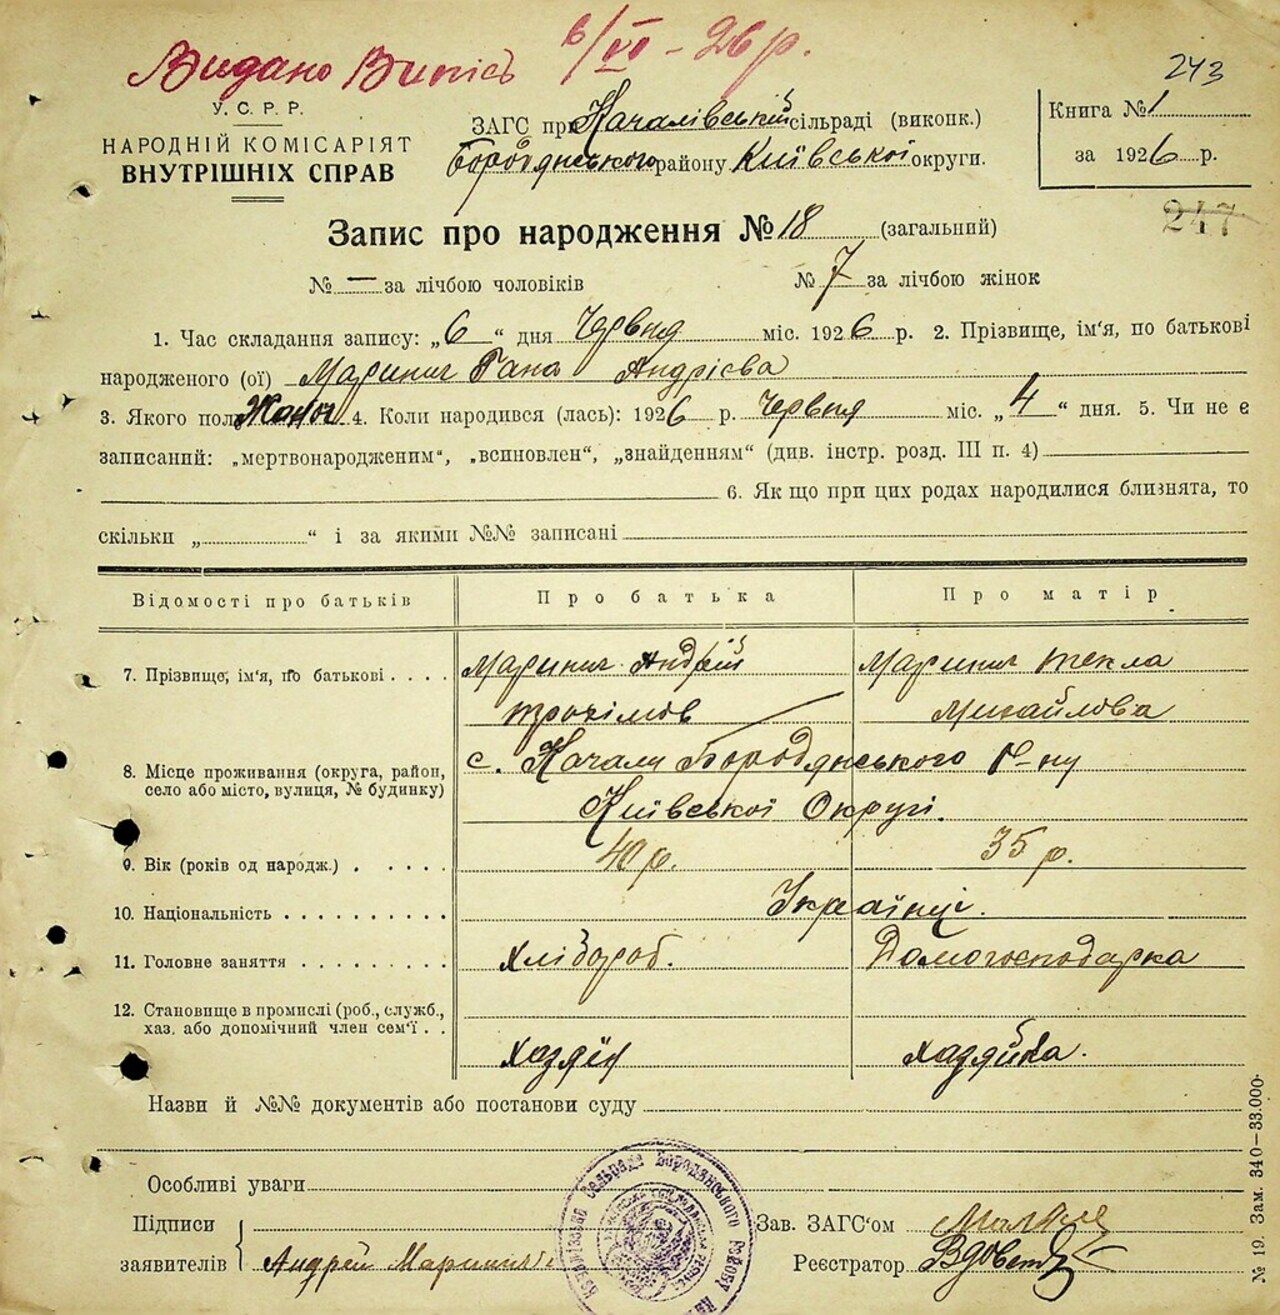 Видано Випісь 6/VI - 26 р.
243
У. С. Р. Р.
НАРОДНІЙ КОМІСАРІЯТ
ВНУТРІШНІХ СПРАВ
ЗАГС при Качалівській сільраді (виконк.)
Бородянського району Київської округи.
Книга № 1
за 1926 р.
247
Запис про народження № 18 (загальний)
№ — за лічбою чоловіків № 7 за лічбою жінок
1. Час складання запису: „6“ дня Червня міс. 1926 р. 2. Прізвище, ім'я, по батькові
народженого (ої) Маринич Гана Андрієва
3. Якого пол Жіноч 4. Коли народився (лась): 1926 р. Червня міс. „4“ дня. 5. Чи не є
записаний: „мертвонародженим“, „всиновлен“, „знайденням“ (див. інстр. розд. III п. 4)
6. Як що при цих родах народилися близнята, то
скільки „ “ і за якими №№ записані
Відомості про батьків Про батька Про матір
7. Прізвище, ім'я, по батькові . . . . Маринич Андрій Маринич Текла
Трохімов Михайлова
8. Місце проживання (округа, район, село або місто, вулиця, № будинку) с. Качали Бородянського Р-ну
Київської Округі.
9. Вік (років од народж.) . . . . . 40 р. 35 р.
10. Національність . . . . . . . . . . Українці.
11. Головне заняття . . . . . . . . . Хлібороб. Домогосподарка
12. Становище в промислі (роб., служб.,
хаз. або допомічний член сем'ї . . Хазяїн хазяйка.
Назви й №№ документів або постанови суду
Особливі уваги
Підписи
заявителів Андрей Маринич
Зав. ЗАГС'ом
Реєстратор
Сельрада Бородянського
№ 19. Зам. 340—33.000